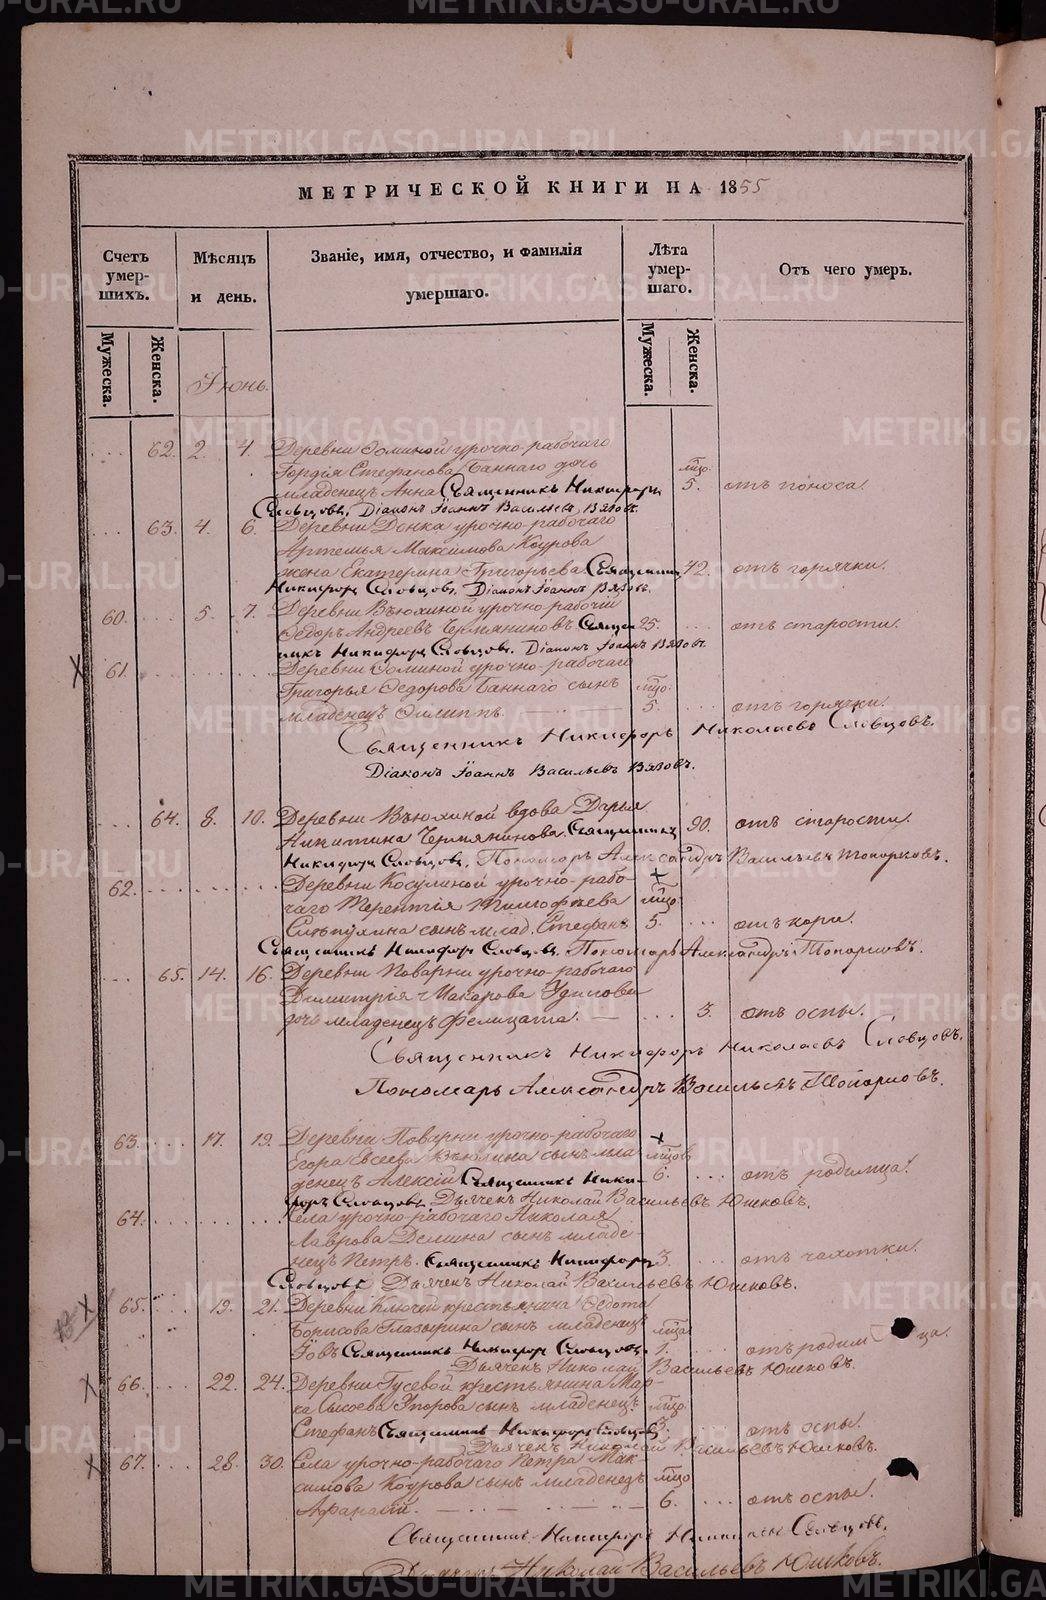 МЕТРИЧЕСКОЙ КНИГИ НА 1855
Счетъ умер- шихъ.
Мѣсяцъ и день.
Званіе, имя, отчество, и фамилія умершаго.
Лѣта умер- шаго.
Отъ чего умеръ.
Мужеска.
Женска.
Мужеска.
Женска.
Іюнь.
62. 2. 4. Деревни Ѳоминой урочно-рабочаго
Гордія Стефанова Баннаго дочь
младенецъ Анна Священникъ Никифоръ 5. отъ поноса.
Словцовъ. Діаконъ Іоаннъ Васильевъ Вязовъ.
63. 4. 6. Деревни Донка урочно-рабочаго
Артемья Максимова Коурова
жена Екатерина Григорьева Священникъ 42. отъ горячки.
Никифоръ Словцовъ. Діаконъ Іоаннъ Вязовъ.
60. 5. 7. Деревни Вьюхиной урочно-рабочій
Ѳедоръ Андреевъ Чермяниновъ Священ 25. отъ старости.
никъ Никифоръ Словцовъ. Діаконъ Іоаннъ Вязовъ.
61. Деревни Ѳоминой урочно-рабочаго
Григорья Ѳедорова Баннаго сынъ мцо.
младенецъ Филиппъ. 5. отъ горячки.
Священникъ Никифоръ Николаевъ Словцовъ.
Діаконъ Іоаннъ Васильевъ Вязовъ.
64. 8. 10. Деревни Вьюхиной вдова Дарья
Никитина Чермянинова. Священникъ 90. отъ старости.
Никифоръ Словцовъ. Пономарь Александръ Васильевъ Топорковъ.
62. Деревни Косулиной урочно-рабо-
чаго Терентія Тимофѣева мцо.
сынъ млад. Стефанъ 5. отъ кори.
Священникъ Никифоръ Словцовъ. Пономарь Александръ Топорковъ.
65. 14. 16. Деревни Поварни урочно-рабочаго
Димитрія Макарова
дочь младенецъ Фелицата. 3. отъ оспы.
Священникъ Никифоръ Николаевъ Словцовъ.
Пономарь Александръ Васильевъ Топорковъ.
63. 17. 19. Деревни Поварни урочно-рабочаго
Егора Евсеева Вьюхина сынъ мла
денецъ Алексій Священникъ Ники- 6. отъ родимца.
форъ Словцовъ. Дьячекъ Николай Васильевъ Юшковъ.
64. Села урочно-рабочаго Николая
Лаврова Демина сынъ младе
нецъ Петръ. Священникъ Никифоръ 3. отъ чахотки.
Словцовъ. Дьячекъ Николай Васильевъ Юшковъ.
65. 19. 21. Деревни Ключей крестьянина Ѳедота
Борисова Глазырина сынъ младенецъ
Іовъ Священникъ Никифоръ Словцовъ. 1. отъ родимца.
Дьячекъ Николай Васильевъ Юшковъ.
66. 22. 24. Деревни Гусевой крестьянина Мар-
ка Сысоева сынъ младенецъ мцо.
Стефанъ Священникъ Никифоръ Словцовъ 3. отъ оспы.
Дьячекъ Николай Васильевъ Юшковъ.
67. 28. 30. Села урочно-рабочаго Петра Мак-
симова Коурова сынъ младенецъ мцо
Афанасій. 6. отъ оспы.
Священникъ Никифоръ Николаевъ Словцовъ.
Дьячекъ Николай Васильевъ Юшковъ.
METRIKI.GASO-URAL.RU